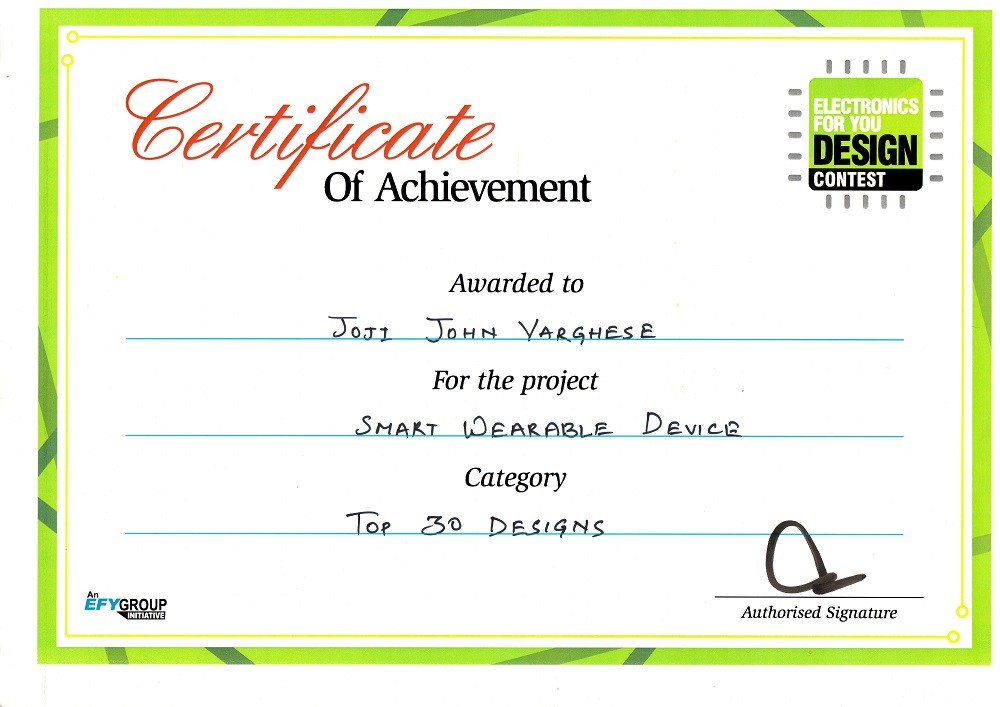 Certificate
Of Achievement
ELECTRONICS
FOR YOU
DESIGN
CONTEST
Awarded to
JOJI JOHN VARGHESE
For the project
SMART WEARABLE DEVICE
Category
TOP 30 DESIGNS
An
EFYGROUP
INITIATIVE
Authorised Signature